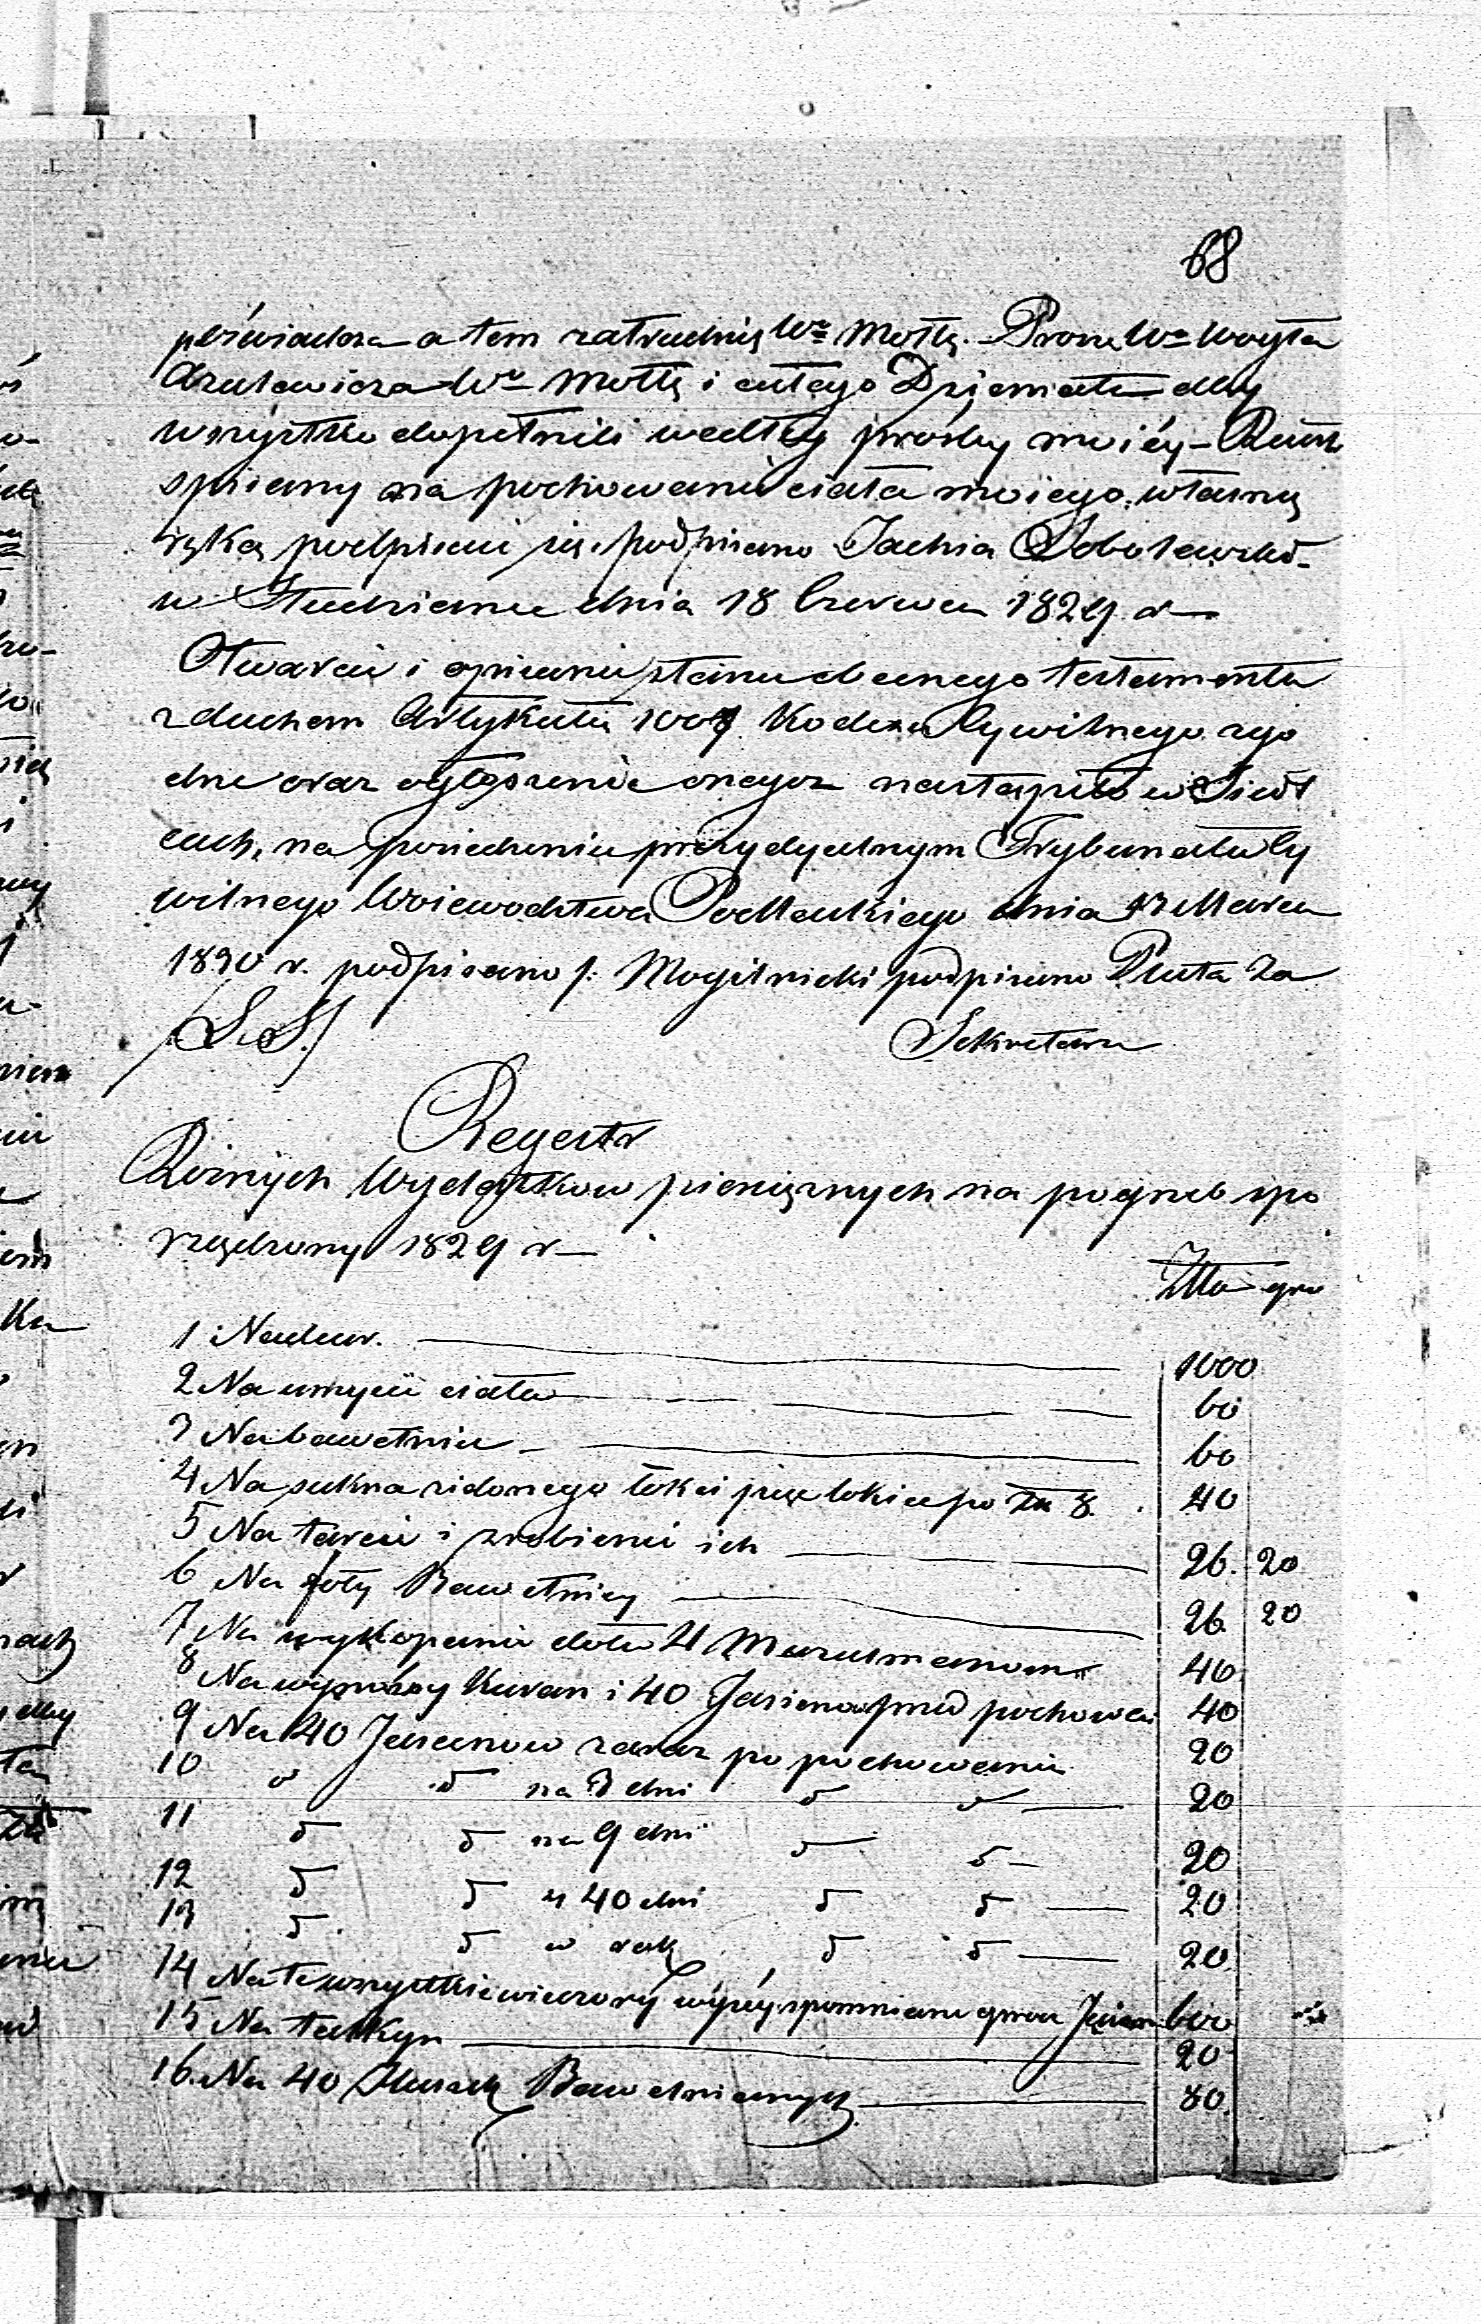 68
a tem zatrudnią Wo Mołłę. Proszę Wo Woyta
Wo Mołłę i całego Dziemiatu aby
wszystko dopełnili według prośby moiéy
spisany na pochowanie ciała moiego, własną
ręką podpisani się. podpisano Jachia Sobolewski
w Studziance dnia 18 Czerwca 1829 r
Otwarcie i opisanie stanu obecnego testamentu
z duchem Artykułu 1007 Kodexu Cywilnego
oraz ogłoszenie onegoż nastąpiło w Siedl
cach, na posiedzeniu prezydyalnym Trybunału Cy
wilnego Woiewodztwa Podlaskiego dnia 13 Marca
1830 r. podpisano J. Mogilnicki podpisano Pluta Za
/L. S./ Sekretarza
Regestr
Roznych Wydatkow pienięznych na pogrzeb spo
rządzony 1829 r
Złło gro
1 1000
2 Na umycie ciała 60
3 Na bawełnie 60
4 Na sukna zielonego łokci pięć łokieć po Zło 8. 40
5 Na tarcic i zrobienie ich 26. 20
6 Na Bawełnicy 26 20
7 Na wykopanie dołu 4 Muzułmanom 40
8 Kuran i 40 Jasienow przed pochowa 40
9 Na 40 Jasienow zaraz po pochowaniu 20
10 na 3 dni 20
11 na 9 dni 20
12 40 dni 20
13 w rok 20
14 Na te wszystkie wieczory wyzey wspomniane 600
15 Na 20
16. Na 40 Bawełnianych 80.